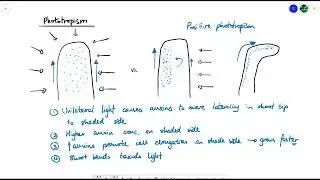 Phototropism
Positive phototropism
vs.
① Unilateral light causes auxins to move laterally in shoot tip
to shaded side
② Higher auxin conc. on shaded side
③ ↑ auxins promote cell elongation on shade side → grows faster
④ Shoot bends towards light